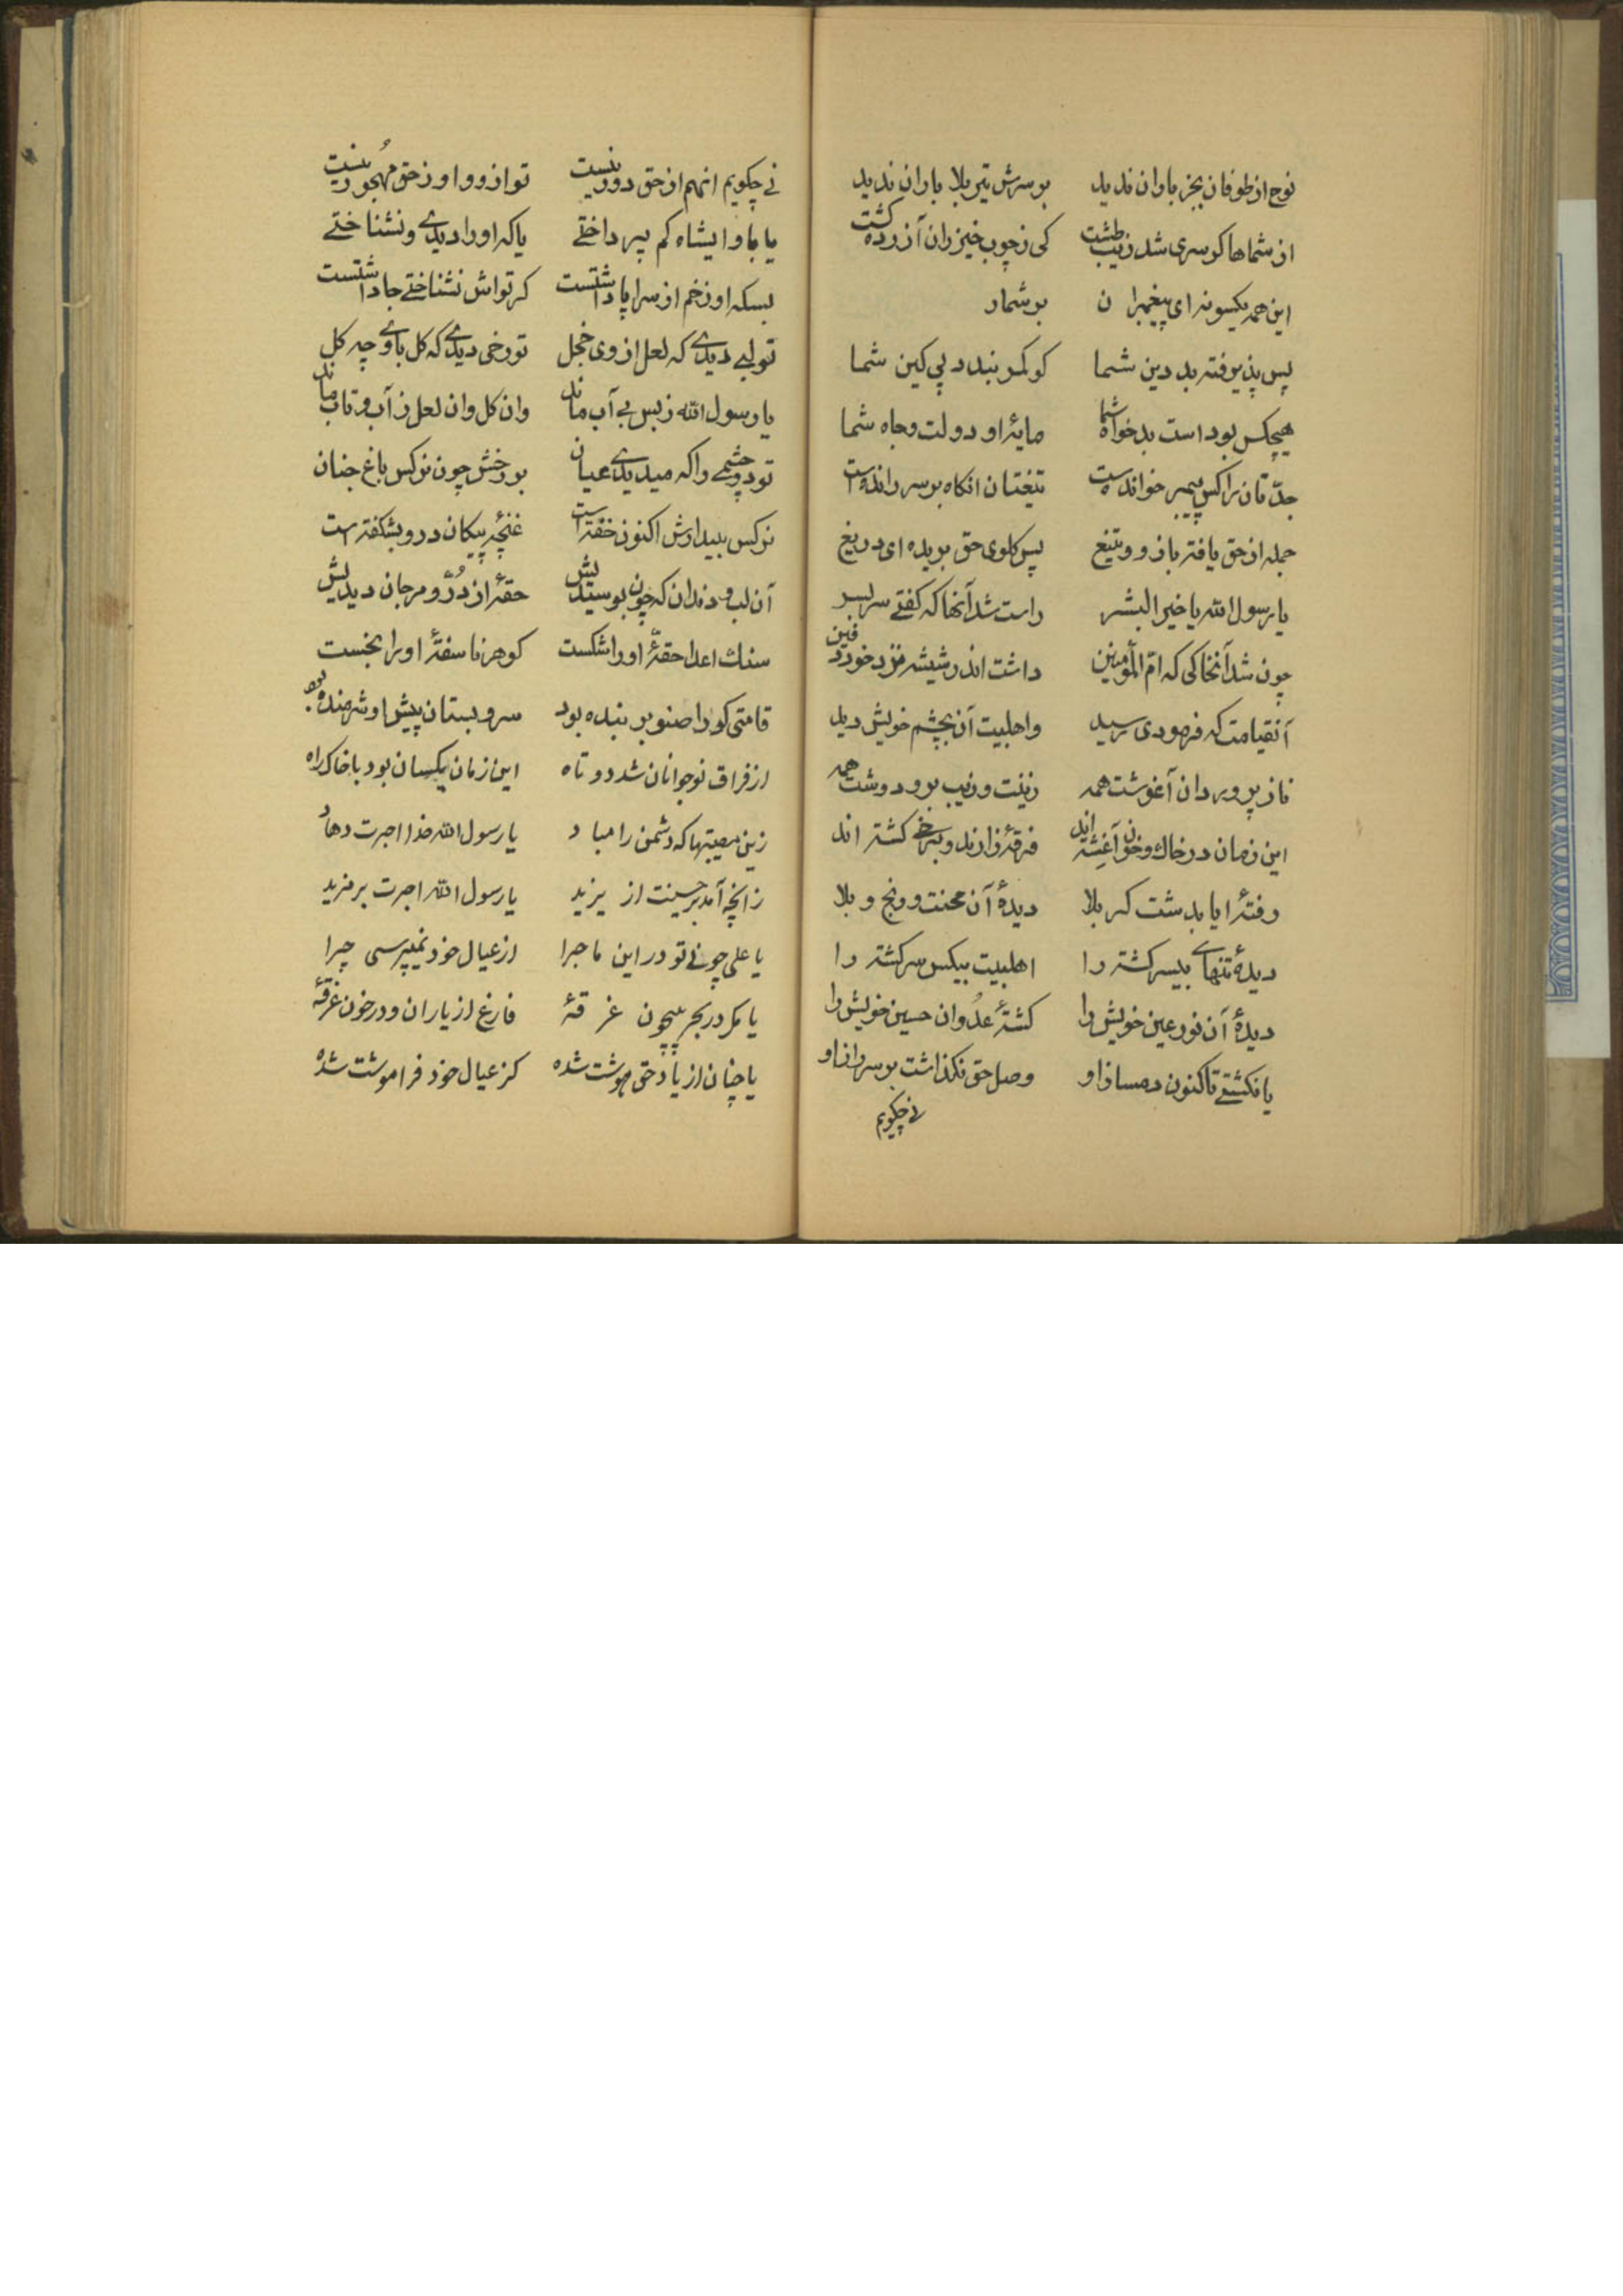 نوح از طوفان بجز باران ندید بر سرش تیر بلا باران ندید
از شماها کو سری شد زیب طشت کی ز چوب خیزران آزرده گشت
این همه یکسو نه ای پیغمبران بر شمار
پس پذیرفته بد دین شما کو کمر بندد پی کین شما
هیچکس بود است بدخواه شما مایهٔ او دولت و جاه شما
جدّتان را کس پیمبر خوانده است تیغتان آنگاه بر سر رانده است
جمله از حق یافته بازو و تیغ پس گلوی حق بریده ای دریغ
یا رسول الله یا خیر البشر راست شد آنها که گفتی سربسر
چون شد آنخاکی که امّ المؤمنین داشت اندر شیشه نزد خود دفین
آنقیامت که فرمودی رسید واهلبیت آن بچشم خویش دید
ناز پروردان آغوشت همه زینت و زیب بر و دوشت همه
این زمان در خاک و خون آغشته اند فرقهٔ زارند و برخی کشته اند
رفتهٔ آیا بدشت کربلا دیدهٔ آن محنت و رنج و بلا
دیدهٔ تنهای بیسر کشته را اهلبیت بیکس سرگشته را
دیدهٔ آن نور عین خویش را کشتهٔ عدوان حسین خویش را
یا نگشتی تاکنون دمساز او وصل حق نگذاشت بر سر راز او
نی چگویم
نی چگویم انهم از حق دور نیست تو از او و او ز حق مهجور نیست
یا با و ایشاه کم پرداختی یا که او را دیدی و نشناختی
بسکه او زخم از سراپا داشتست گر تواش نشناختی جا داشتست
تو لبی دیدی که لعل از وی خجل تو رخی دیدی که گل با وی چه گل
یا رسول الله ز بس بی آب ماند وان گل وان لعل از آب و تاب ماند
تو دو چشمی را که میدیدی عیان بر رخش چون نرگس باغ جنان
نرگس بیدارش اکنون خفته است غنچهٔ پیکان در و بشکفته است
آن لب و دندان که چون بوسیدیش حقهٔ از دُرّ و مرجان دیدیش
سنگ اعدا حقهٔ او را شکست گوهر ناسفتهٔ او را بخست
قامتی کو را صنوبر بنده بود سرو بستان پیش او شرمنده بود
از فراق نوجوانان شد دو تاه این زمان یکسان بود با خاک راه
زین مصیبتها که دشمن را مباد یا رسول الله خدا اجرت دهاد
زانچه آمد بر حسینت از یزید یا رسول الله اجرت بر مزید
یا علی چونی تو در این ماجرا از عیال خود نمیپرسی چرا
یا مگر در بحر بیچون غرقهٔ فارغ از یاران و در خون غرقهٔ
یا چنان از یاد حق مهوشت شده کز عیال خود فراموشت شده